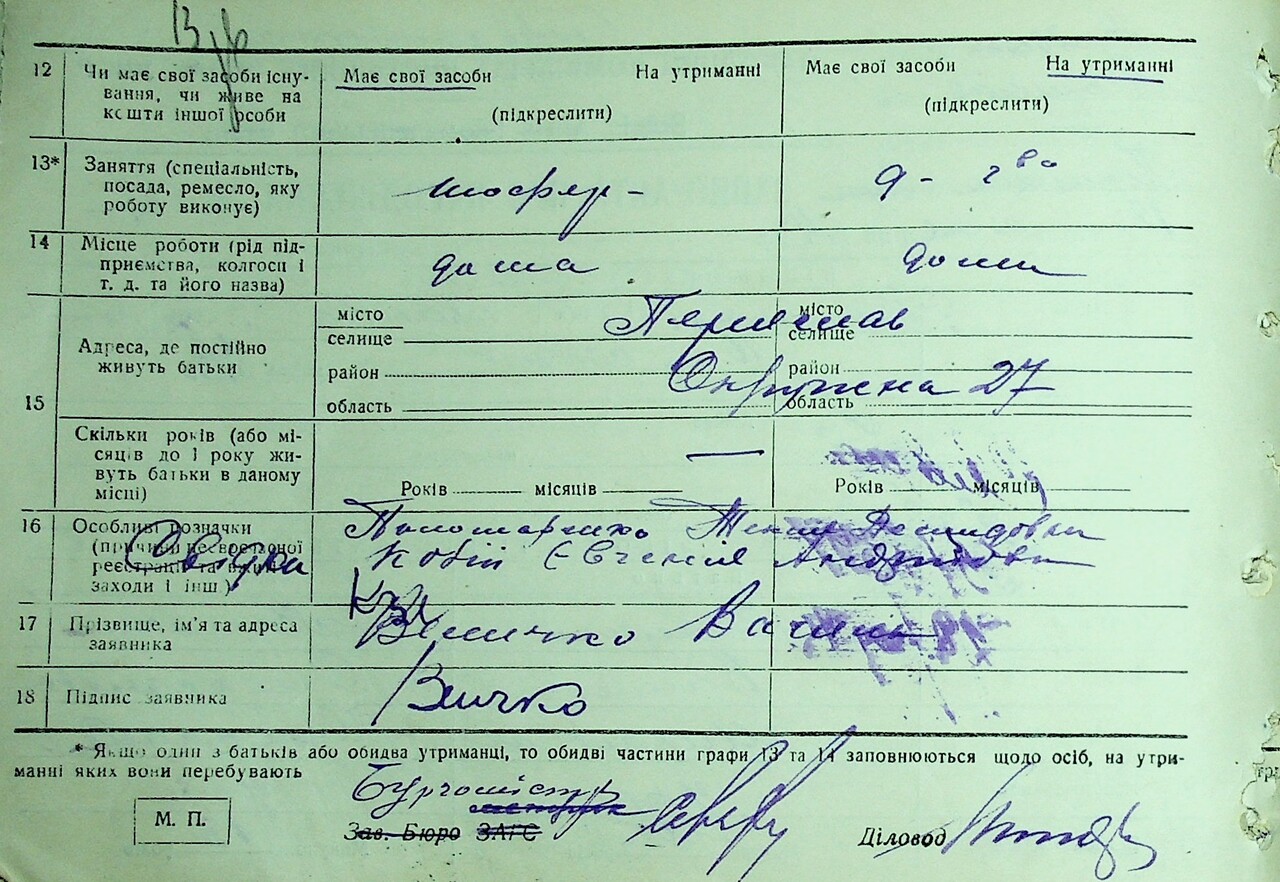 12 Чи має свої засоби існу-
вання, чи живе на
кошти іншої особи
Має свої засоби На утриманні
(підкреслити)
Має свої засоби На утриманні
(підкреслити)
13* Заняття (спеціальність,
посада, ремесло, яку
роботу виконує)
шофер -
д - гво
14 Місце роботи (рід під-
приємства, колгосп і
т. д. та його назва)
дома
дома
15 Адреса, де постійно
живуть батьки
місто
селище
район
область
місто
селище
район
область
Переяслав
Окружна 27
Скільки років (або мі-
сяців до 1 року жи-
вуть батьки в даному
місці)
Років місяців
—
Років місяців
16 Особливі розначки
(причини несвоєчасної
реєстрації та вжиті
заходи і інш)
Пономаренко Демидовна
Кобій Євгенія Андріївна
17 Прізвище, ім'я та адреса
заявника
Величко Василь
18 Підпис заявника
Величко
* Якщо один з батьків або обидва утриманці, то обидві частини графи 13 та 14 заповнюються щодо осіб, на утри-
манні яких вони перебувають
М. П.
Бургомістр
Зав. Бюро ЗАГС
Діловод